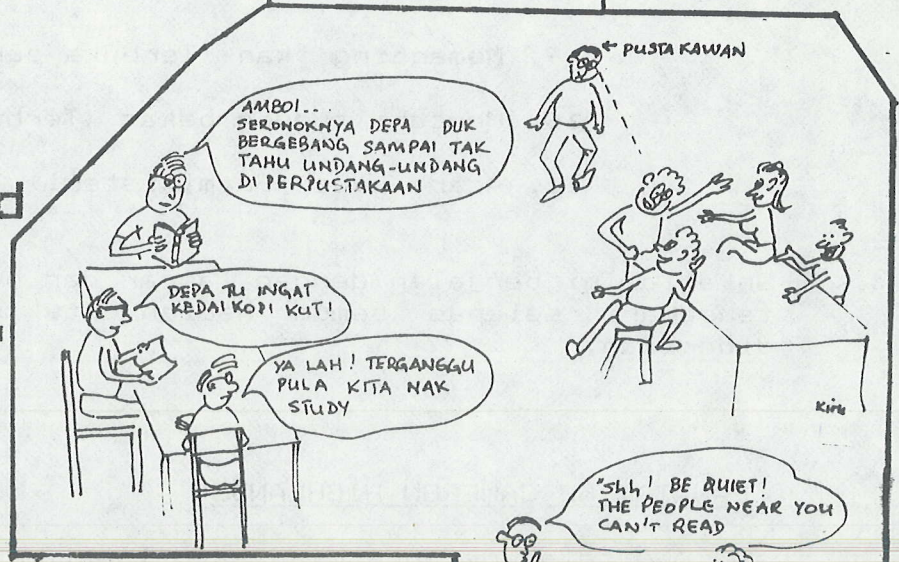 ← PUSTAKAWAN
AMBOI...
SERONOKNYA DEPA DUK
BERGEBANG SAMPAI TAK
TAHU UNDANG-UNDANG
DI PERPUSTAKAAN
DEPA TU INGAT
KEDAI KOPI KUT!
YA LAH! TERGANGGU
PULA KITA NAK
STUDY
"Shh! BE QUIET!
THE PEOPLE NEAR YOU
CAN'T READ